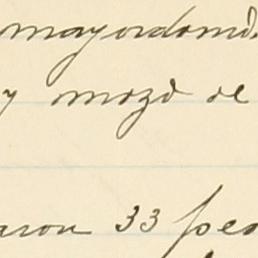 mayordomo
y mozo de
aron 33 pes